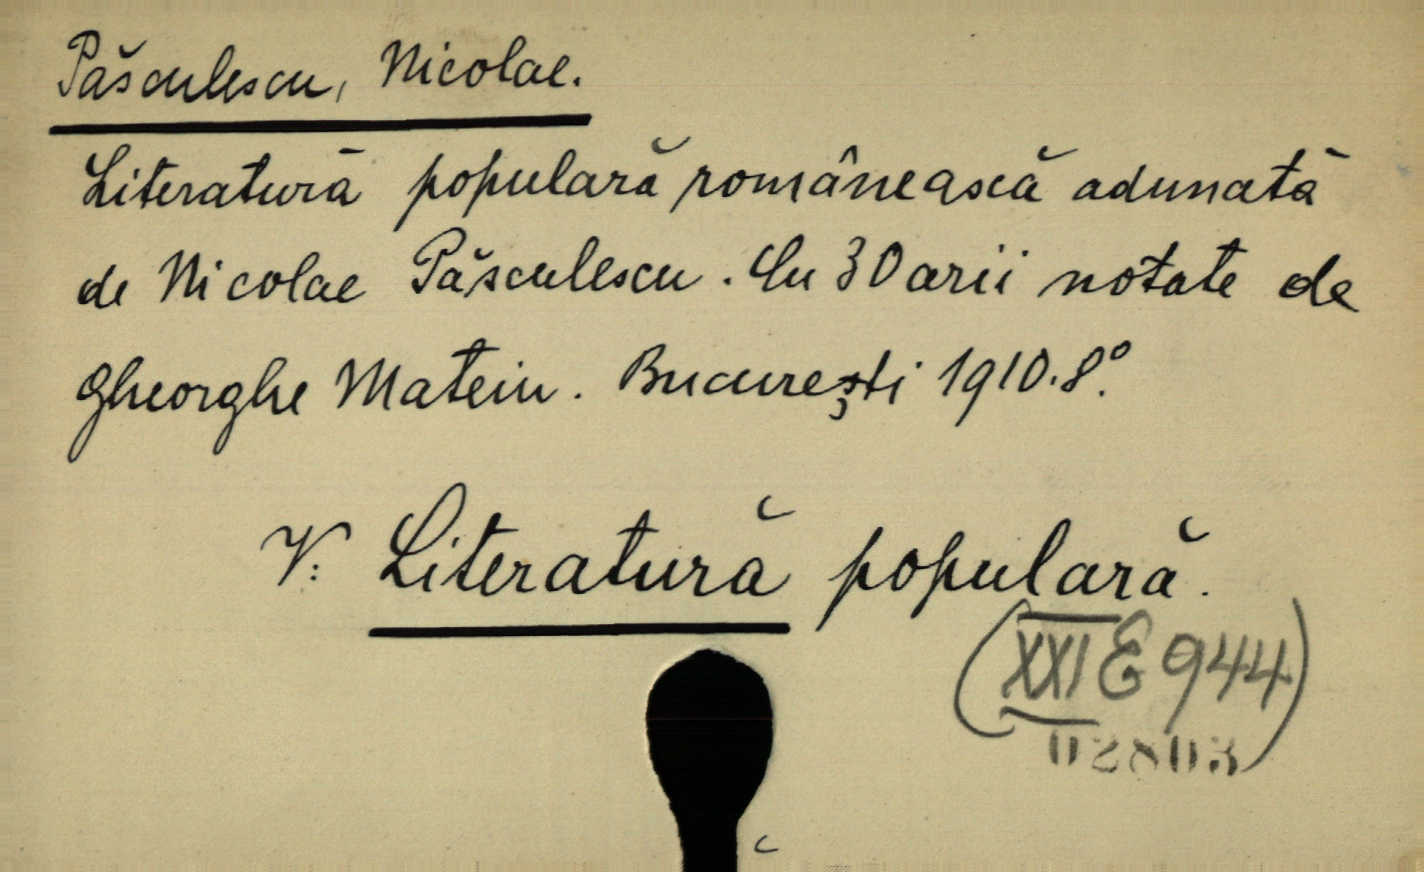 Păsculescu, Nicolae.
Literatură populară românească adunată
de Nicolae Păsculescu. Cu 30 arii notate de
Gheorghe Mateiu. București 1910. 8º.
V: Literatură populară.
(XXI E 944)
02803